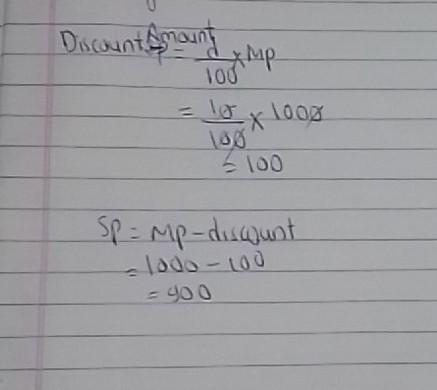 Discount Amount = d/100 × Mp
= 10/100 × 1000
= 100
Sp = Mp - discount
= 1000 - 100
= 900